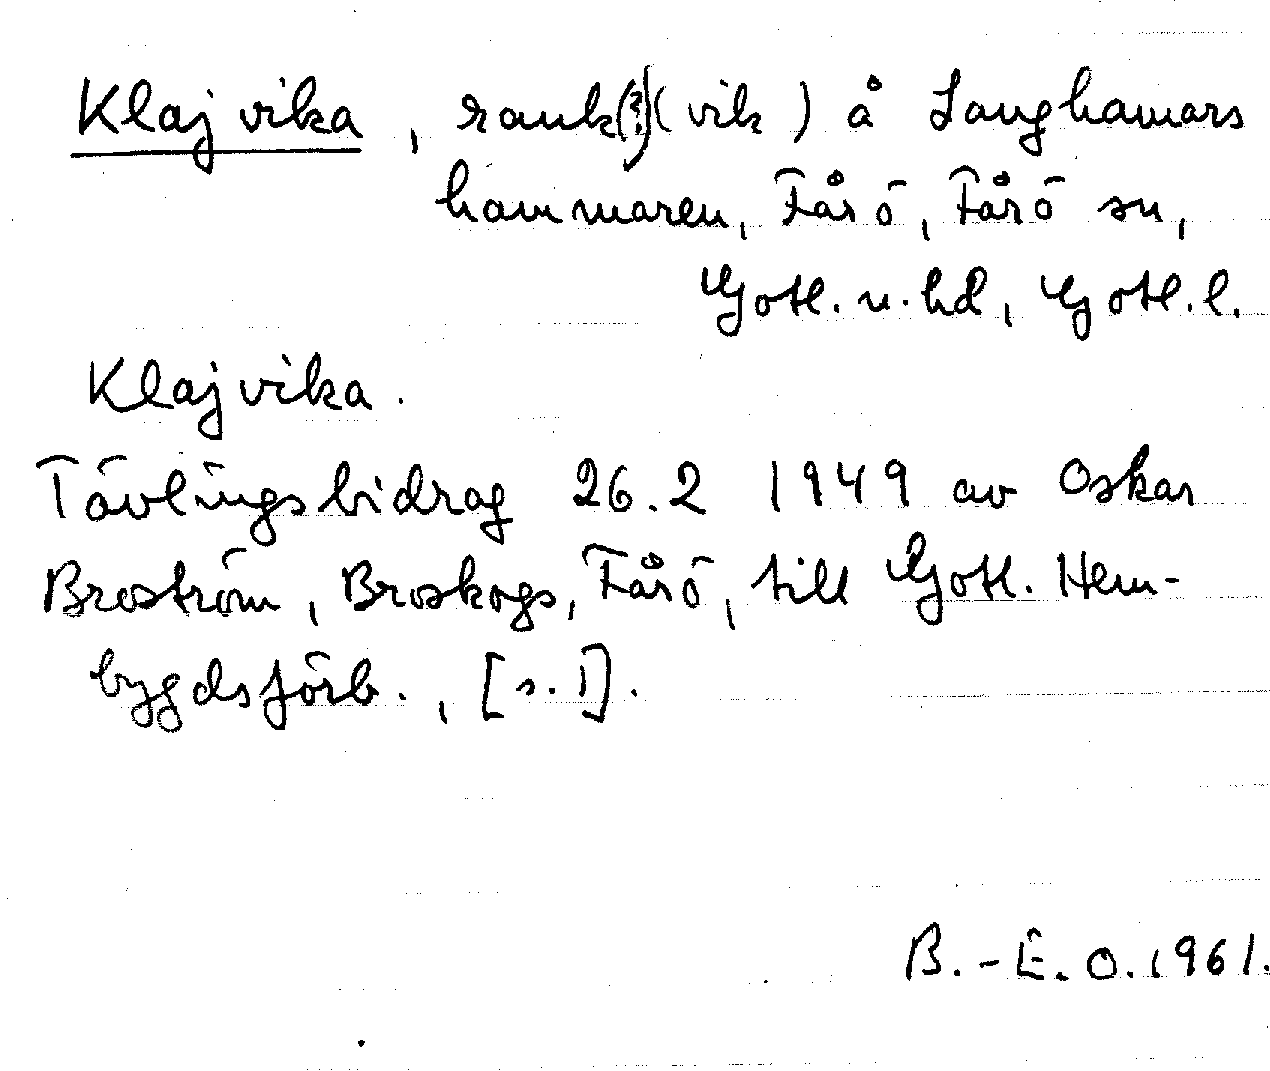 Klajvika, rauk(?)(vik) å Langhamars
hammaren, Fårö, Fårö sn,
Gotl. n. hd, Gotl. l.
Klajvika.
Tävlingsbidrag 26.2 1949 av Oskar
Broström, Broskogs, Fårö, till Gotl. Hem-
bygdsförb., [s. 1].
B.-E. O. 1961.